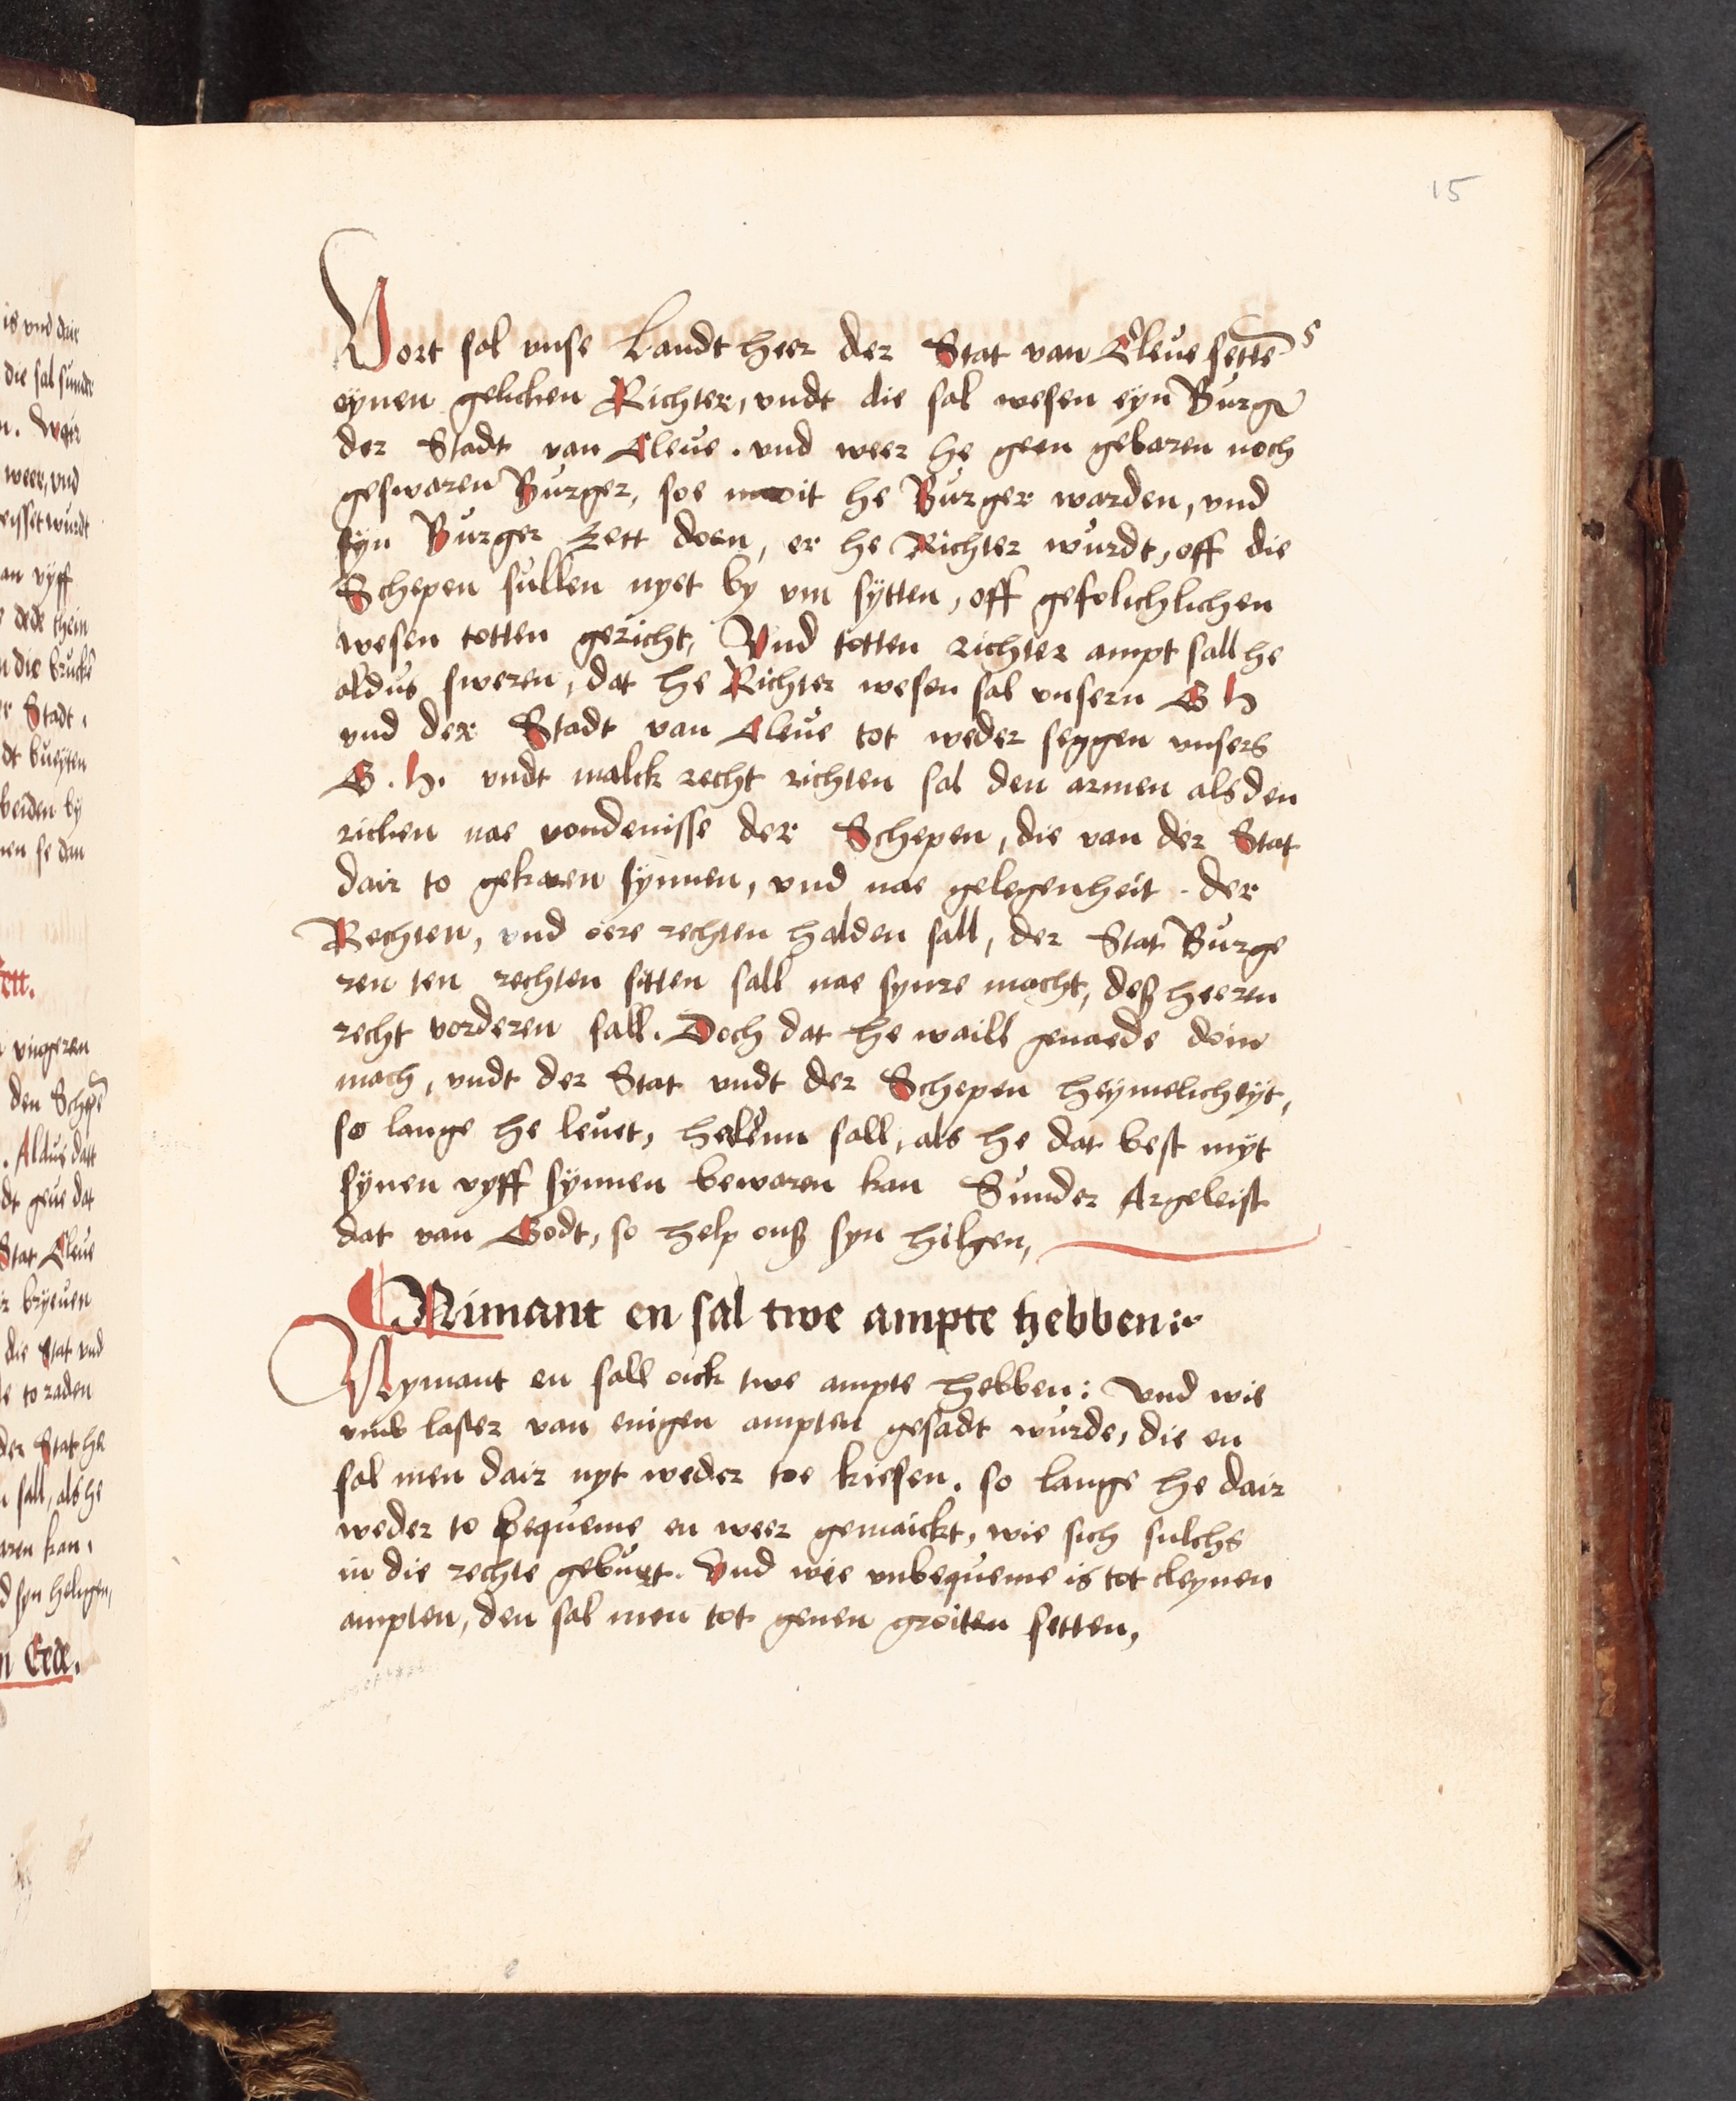 15
Vort sal vnse Landt heer der Stat van Cleue setten
eynen gelicken Richter, vndt die sal wesen eyn Burger
der Stadt van Cleue. vnd weer he geen gebaren noch
geswaren Burger, soe moit he Burger warden, vnd
syn Burger Eett doen, er he Richter wurdt, off die
Schepen sullen nyet by vm sytten, off gefolichlichen
wesen totten gericht, Vnd totten richter ampt sall he
aldus sweren, dat he Richter wesen sal vnsern G h
vnd der Stadt van Cleue tot weder seggen vnsers
G. h. vndt malck recht richten sal den armen als den
ricken nae vondenisse der Schepen, die van der Stat
dair to gekaren synnen, vnd nae gelegenheit der
Rechten, vnd oere rechten halden sall, der Stat Burge
ren ten rechten sitten sall nae synre macht, deß heeren
recht vorderen sall. Doch dat he waill genaede doin
mach, vndt der Stat vndt der Schepen heymelicheyt,
so lange he leuet, helenn sall, als he dat best myt
synen vyff synnen bewaren kan Sunder Argeleist
dat van Godt, so help onß syn hilgen,
Nimant en sal twe ampte hebben:
Nymant en sall oick twe ampte hebben: Vnd wie
vmb laster van enigen ampten gesadt wurde, die en
sal men dair nyt weder toe kiesen. so lange he dair
weder to bequeme en weer gemaickt, wie sich sulchs
in die rechte geburt. Vnd wie vnbequeme is tot cleynen
ampten, den sal men tot genen groiten setten,